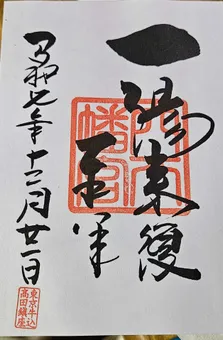 一陽来復
奉拝
穴八
幡宮
令和七年十二月廿一日
東京牛込
高田鎮座